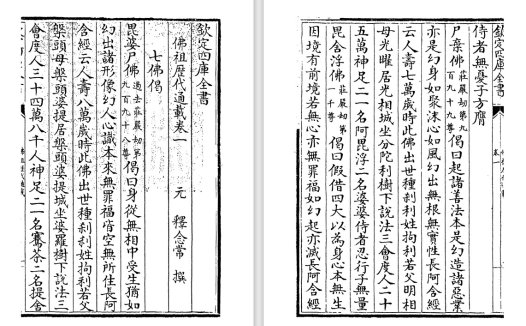 欽定四庫全書
佛祖歷代通載卷一
元 釋念常 撰
七佛偈
毘婆尸佛過去莊嚴劫第九百九十八尊偈曰身從無相中受生猶如
幻出諸形像幻人心識本來無罪福皆空無所住長阿
含經云人壽八萬歲時此佛出世種刹利姓拘利若父
槃頭母槃頭婆提居槃頭婆提城坐婆羅樹下說法三
會度人三十四萬八千人神足二一名騫茶二名提舍
欽定四庫全書
侍者無憂子方膺
尸棄佛莊嚴劫第九百九十九尊偈曰起諸善法本是幻造諸惡業
亦是幻身如聚沫心如風幻出無根無實性長阿含經
云人壽七萬歲時此佛出世種刹利姓拘利若父明相
母光曜居光相城坐分陀利樹下說法三會度人二十
五萬神足二一名阿毘浮二名婆婆侍者忍行子無量
毘舍浮佛莊嚴劫第一千尊偈曰假借四大以為身心本無生
因境有前境若無心亦無罪福如幻起亦滅長阿含經